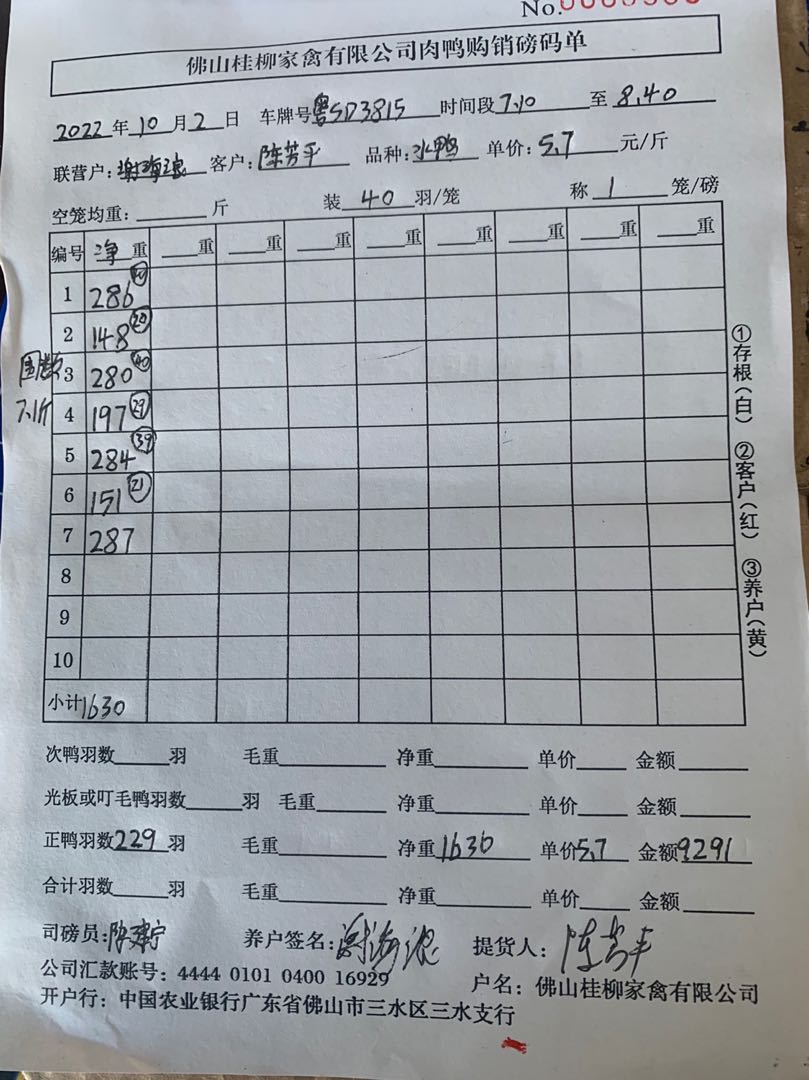 No.
佛山桂柳家禽有限公司肉鸭购销磅码单
2022年10月2日 车牌号粤SD3815 时间段7.10至8.40
联营户:谢海浪 客户:陈芳平 品种:水鸭 单价:5.7元/斤
空笼均重:____斤 装40羽/笼 称1笼/磅
编号 净重 ___重 ___重 ___重 ___重 ___重 ___重 ___重 ___重
1 286 40
2 148 20
3 280 40
4 197 27
5 284 39
6 151 21
7 287
8
9
10
小计 1630
7.1斤
①存根(白) ②客户(红) ③养户(黄)
次鸭羽数____羽 毛重____ 净重____ 单价____ 金额____
光板或叮毛鸭羽数____羽 毛重____ 净重____ 单价____ 金额____
正鸭羽数229羽 毛重____ 净重1630 单价5.7 金额9291
合计羽数____羽 毛重____ 净重____ 单价____ 金额____
司磅员: 养户签名:谢海浪 提货人:陈芳平
公司汇款账号:4444 0101 0400 16929 户名:佛山桂柳家禽有限公司
开户行:中国农业银行广东省佛山市三水区三水支行